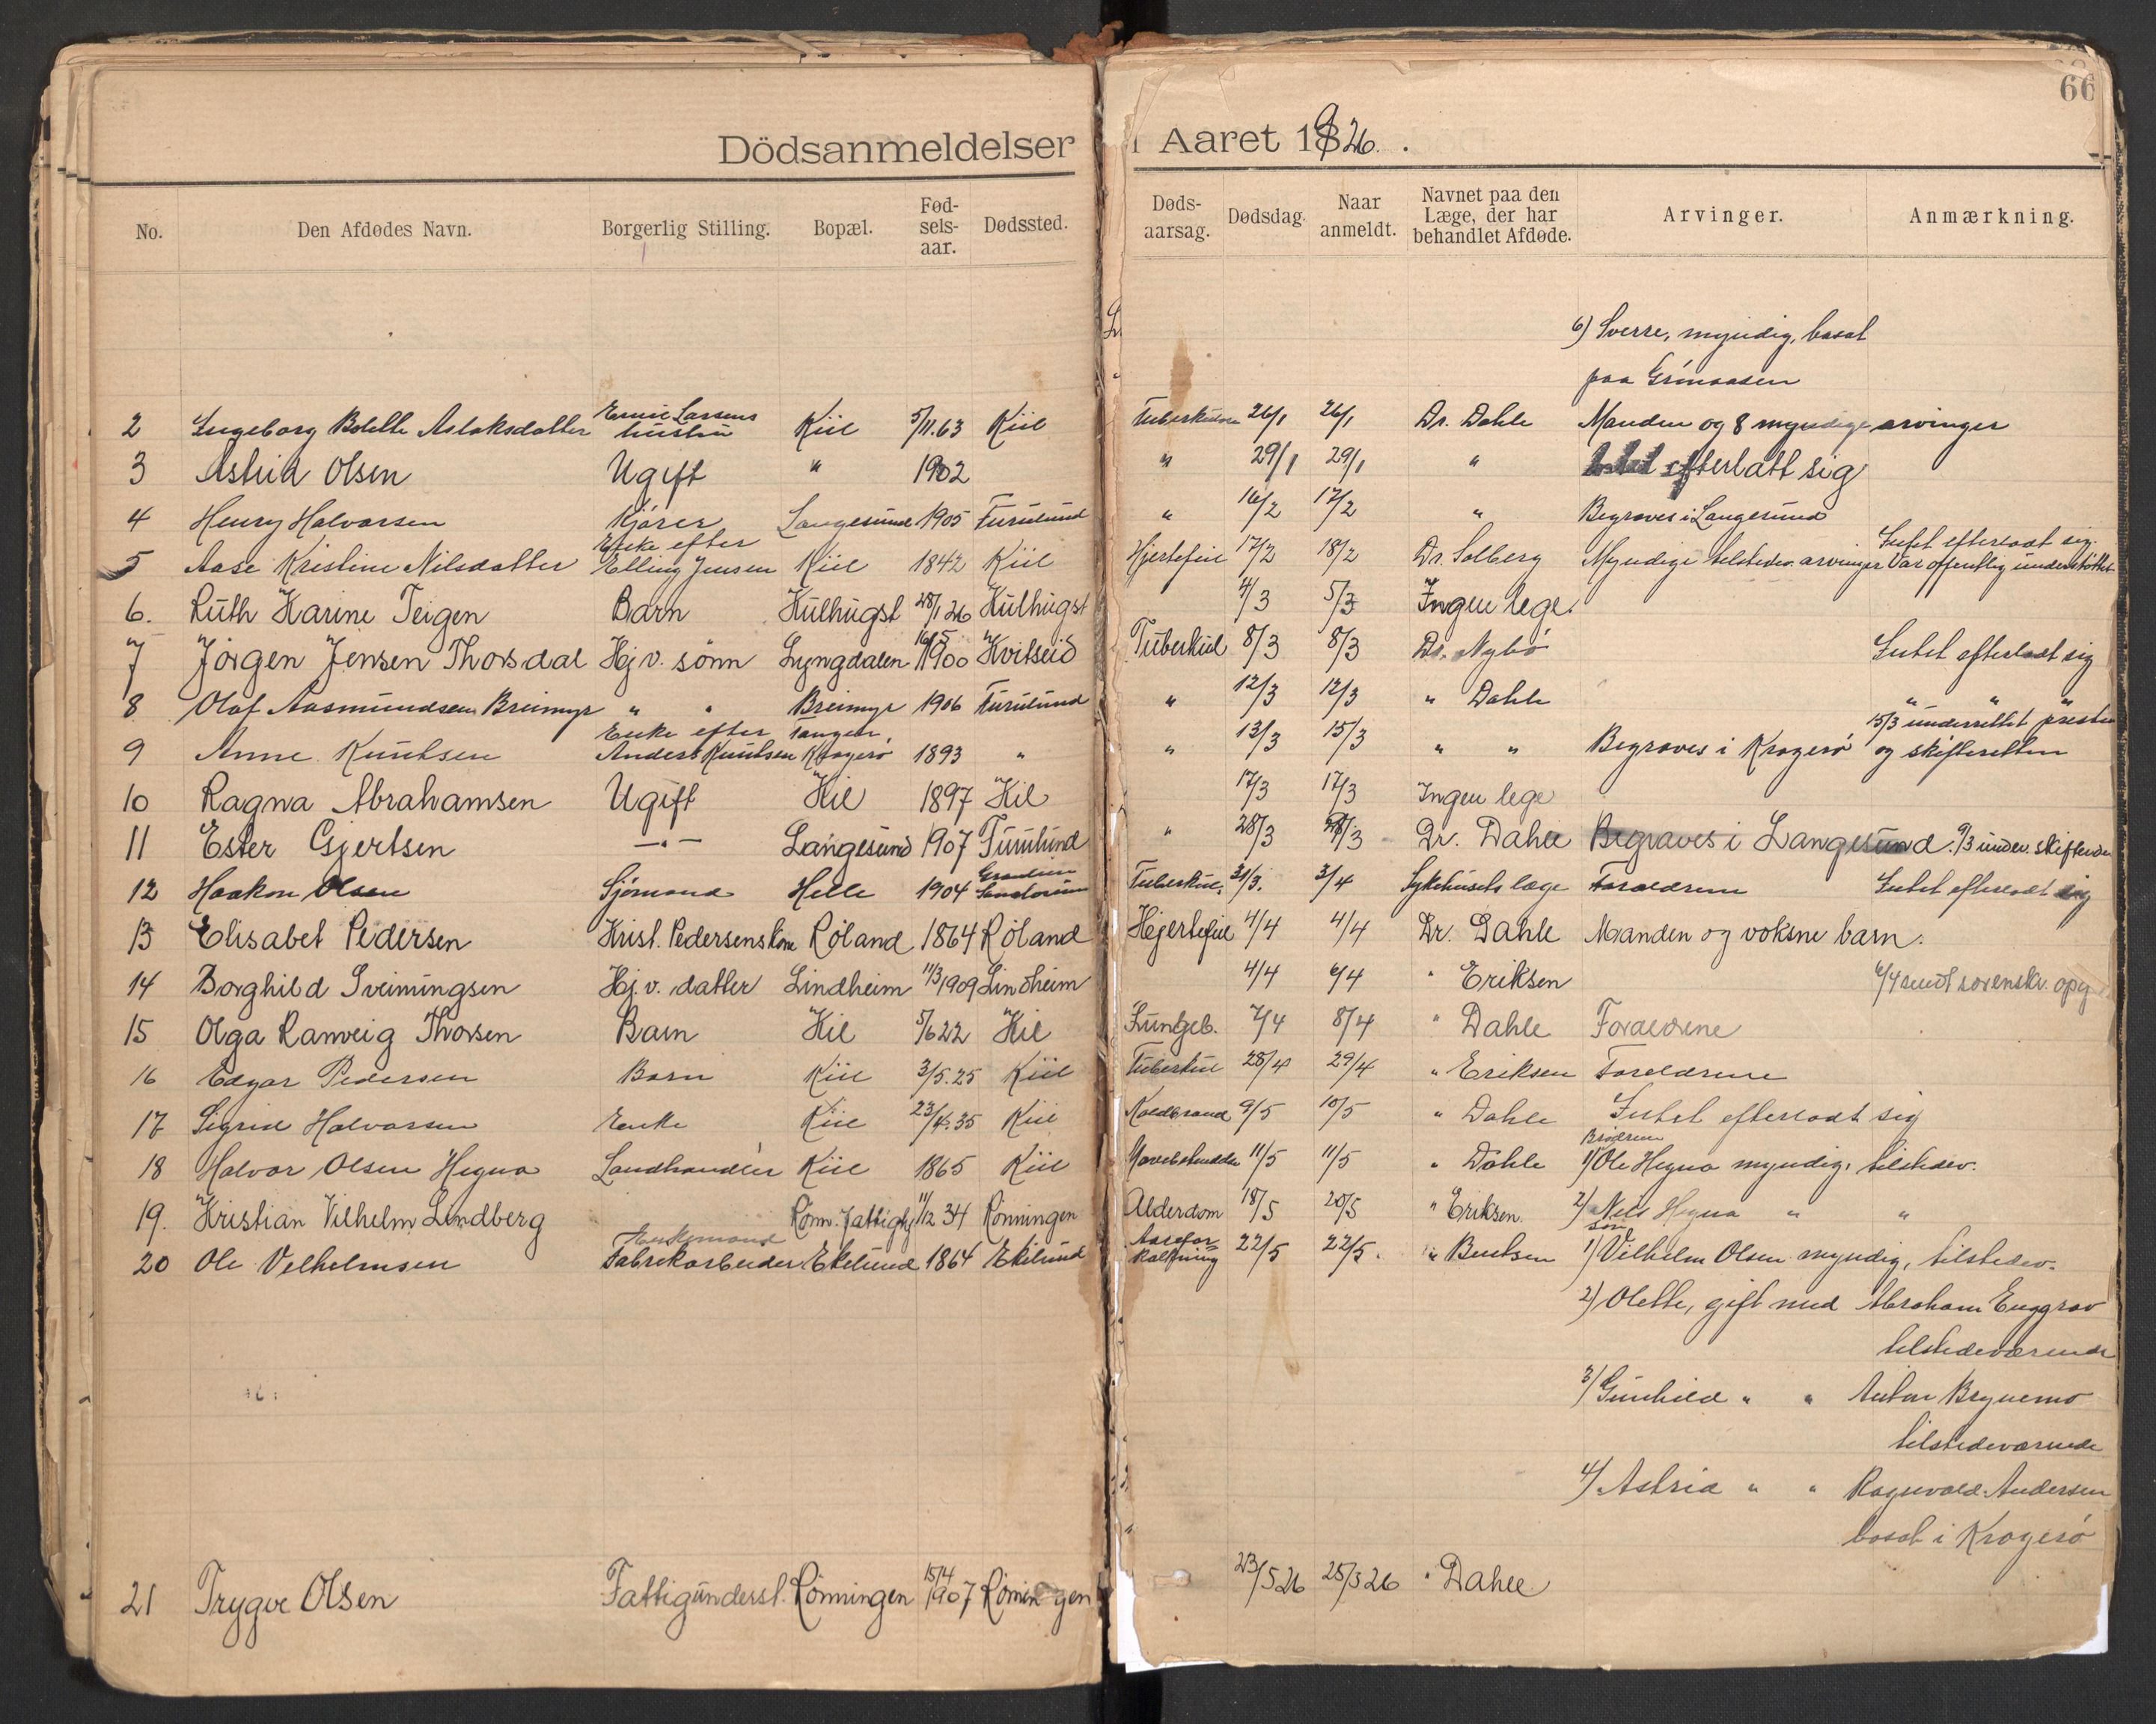 66
Dödsanmeldelser i Aaret 1926.
No. Den Afdødes Navn. Borgerlig Stilling. Bopæl. Fødselsaar. Dødssted. Døds-aarsag. Dødsdag. Naar anmeldt. Navnet paa den Læge, der har behandlet Afdøde. Arvinger. Anmærkning.
6) Sverre, myndig, bosat
paa Grinaasen
2 Ingeborg Bolette Aslaksdatter Larsens hustru Kiil 5/11.63 Kiil 26/1 26/1 Dr. Dahle Manden og 8 myndige arvinger
3 Astrid Olsen Ugift " 1902 " 29/1 29/1 " efterlatt sig
4 Henry Halvorsen Kjører Langesund 1905 Furulund " 16/2 17/2 " Begraves i Langesund
5 Aase Kristine Nilsdatter Enke efter Elling Jensen Kiil 1842 Kiil Hjertefeil 17/2 18/2 Dr. Solberg Myndige tilstedev. arvinger Intet efterladt sig. Var offentlig understøttet
6. Ruth Karine Teigen Barn Hulhugst 28/1 26 Hulhugst 4/3 5/3 Ingen lege.
7 Jörgen Jensen Thorsdal Hj. v. sønn Lyngdalen 1900 Kvitseid Tuberkul 8/3 8/3 Dr. Nybö Intet efterladt sig
8 Olaf Aasmundsen Breimyr " " Breimyr 1906 Furulund " 12/3 12/3 " Dahle " " "
9 Anne Knutsen Enke efter Anders Knutsen Tangen, Kragerø 1893 " " 13/3 15/3 " " Begraves i Kragerø 15/3 underrettet presten og skifteretten
10 Ragna Abrahamsen Ugift Kil 1897 Kil 17/3 17/3 Ingen lege
11 Ester Gjertsen —"— Langesund 1907 Furulund " 28/3 28/3 Dr. Dahle Begraves i Langesund. 9/3 underr. skifter
12 Haakon Olsen Sjömand Helle 1904 Tuberkul. 31/3. 3/4 Sykehusets læge Foraldrene Intet efterladt sig
13 Elisabet Pedersen Krist. Pedersens kone Röland 1864 Röland Hejertefeil 4/4 4/4 Dr. Dahle Manden og voksne barn.
14 Borghild Sveinungsen Hj. v. datter Lindheim 11/3 1909 Lindheim 4/4 6/4 " Eriksen 6/4 sendt sorenskr. opg
15 Olga Ranveig Thorsen Barn Kil 5/6 22 Kil Lungeb. 7/4 8/4 " Dahle Foraldrene
16 Edgar Pedersen Barn Kiil 3/5.25 Kiil Tuberkul 28/4 29/4 " Eriksen Foreldrene
17 Sigrid Halvorsen Enke Kiil 23/4.35 Kiil Koldbrand 9/5 10/5 " Dahle Intet efterladt sig
18 Halvor Olsen Hegna Landhandler Kiil 1865 Kiil 11/5 11/5 " Dahle Brödrene 1) Ole Hegna myndig, tilstedev.
19. Kristian Vilhelm Lindberg Rönn. Fattiggj 11/12 34 Rönningen Alderdom 18/5 20/5 " Eriksen. 2) Nils Hegna " "
20 Ole Velhelmsen Enkemand Fabrikarbeider Ekelund 1864 Ekelund Aareforkalkning 22/5 22/5. " Bentsen Sön 1) Vilhelm Olsen myndig, tilstedev.
2) Olette, gift med Abraham Enggrav
tilstedeværende
3) Gunhild " " Anton Brynemo
tilstedeværende
4) Astrid " " Ragnvald Andersen
bosat i Kragerö
21 Trygve Olsen Fattigunderst. Rönningen 15/4 1907 Rönningen 23/5 26 25/5 26 " Dahle